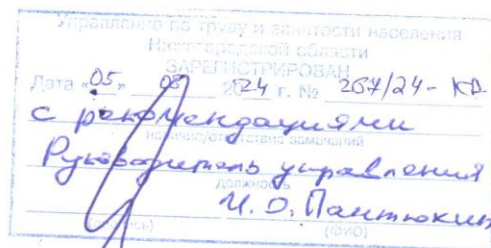 Управление по труду и занятости населения
Нижегородской области
ЗАРЕГИСТРИРОВАН
Дата «05» 03 2024 г. № 267/24-КД
с рекомендациями
наличие/отсутствие замечаний
Руководитель управления
должность
И.О. Пантюхин
(ФИО)